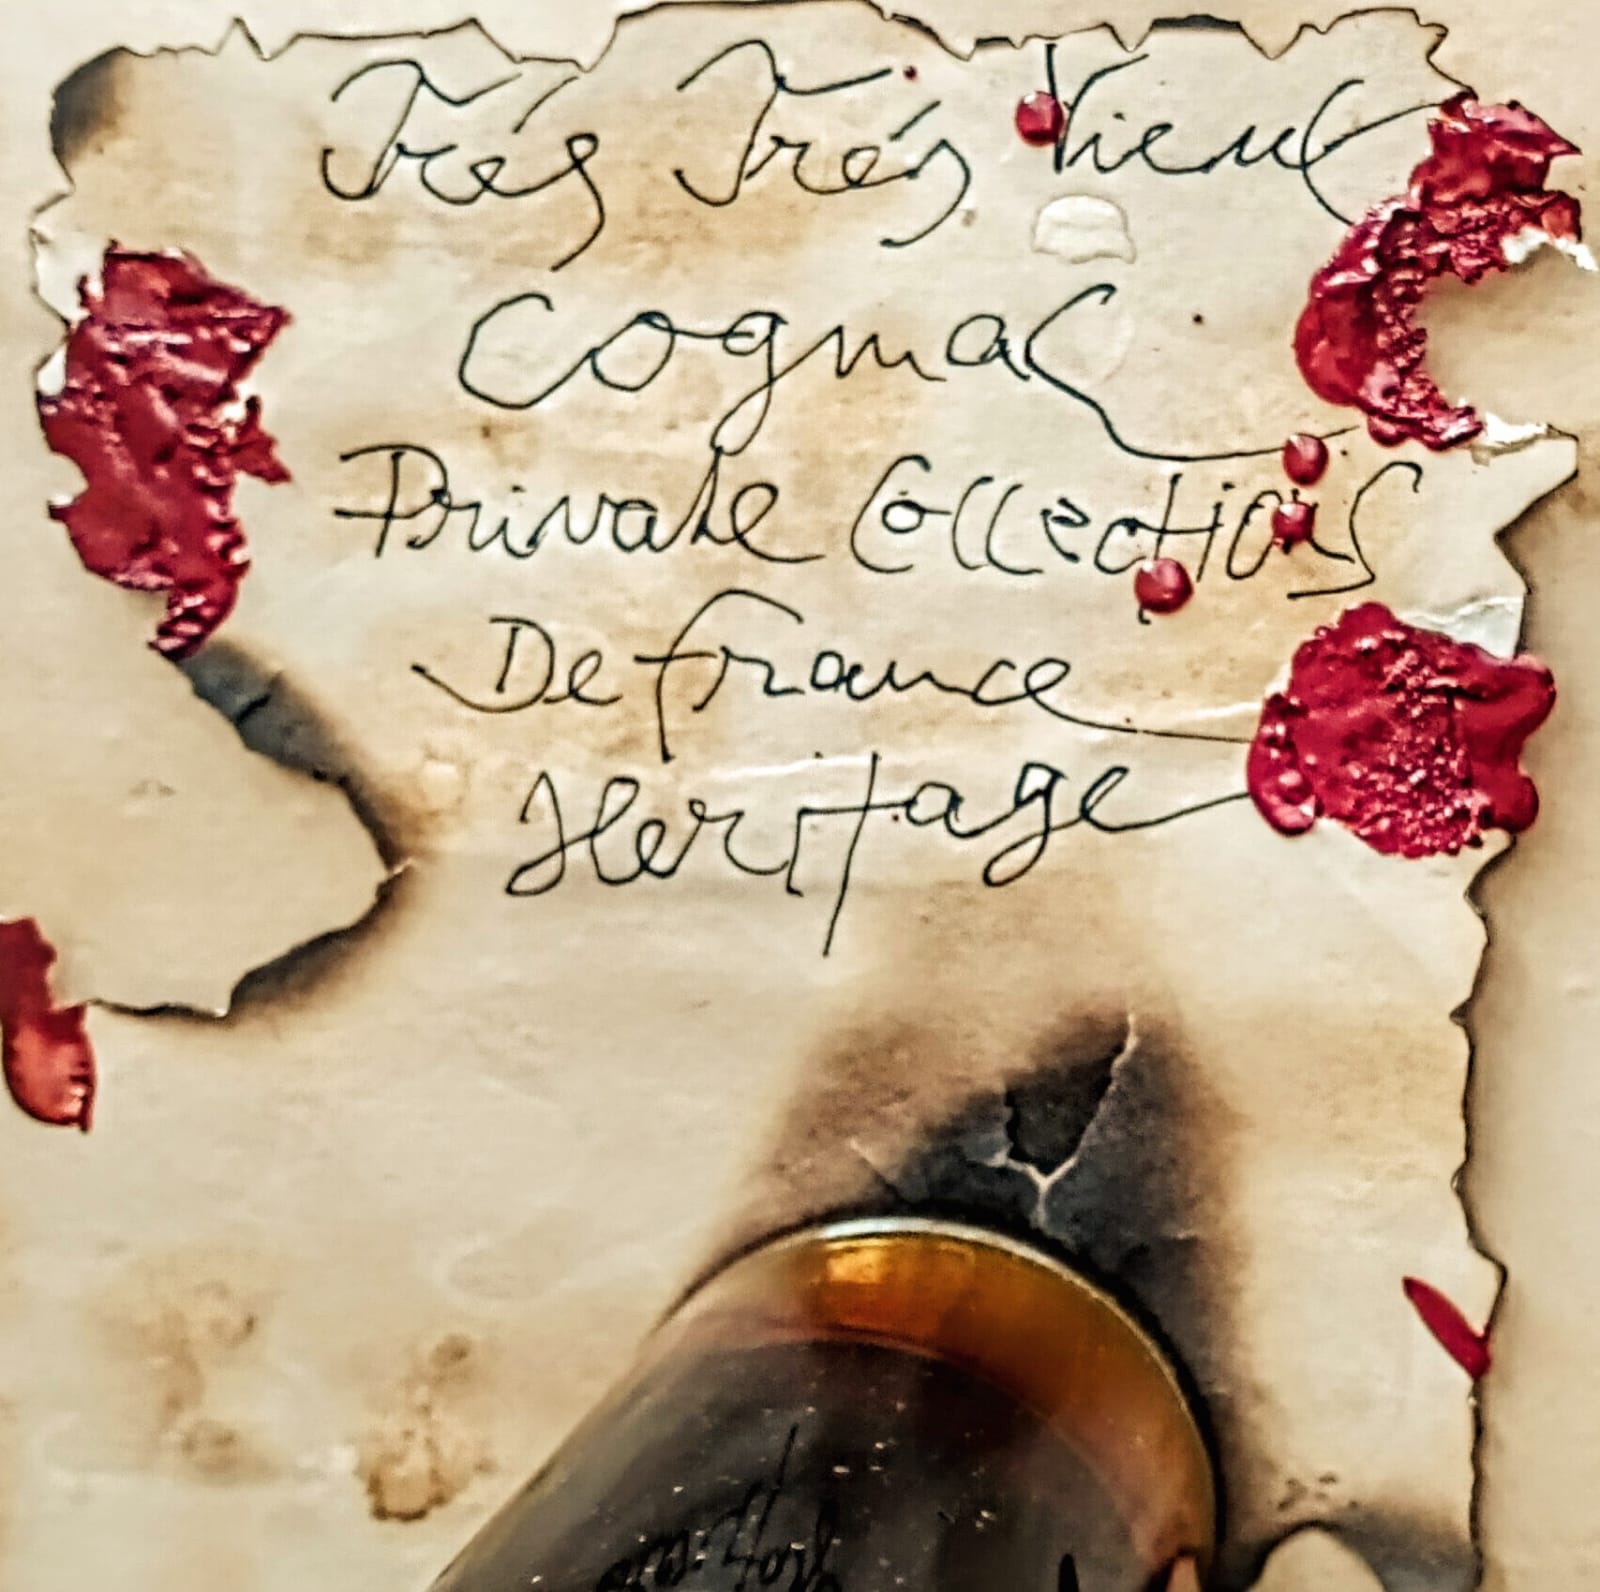 Trés Trés Vieux
Cognac
Private Collections
De france
Heritage